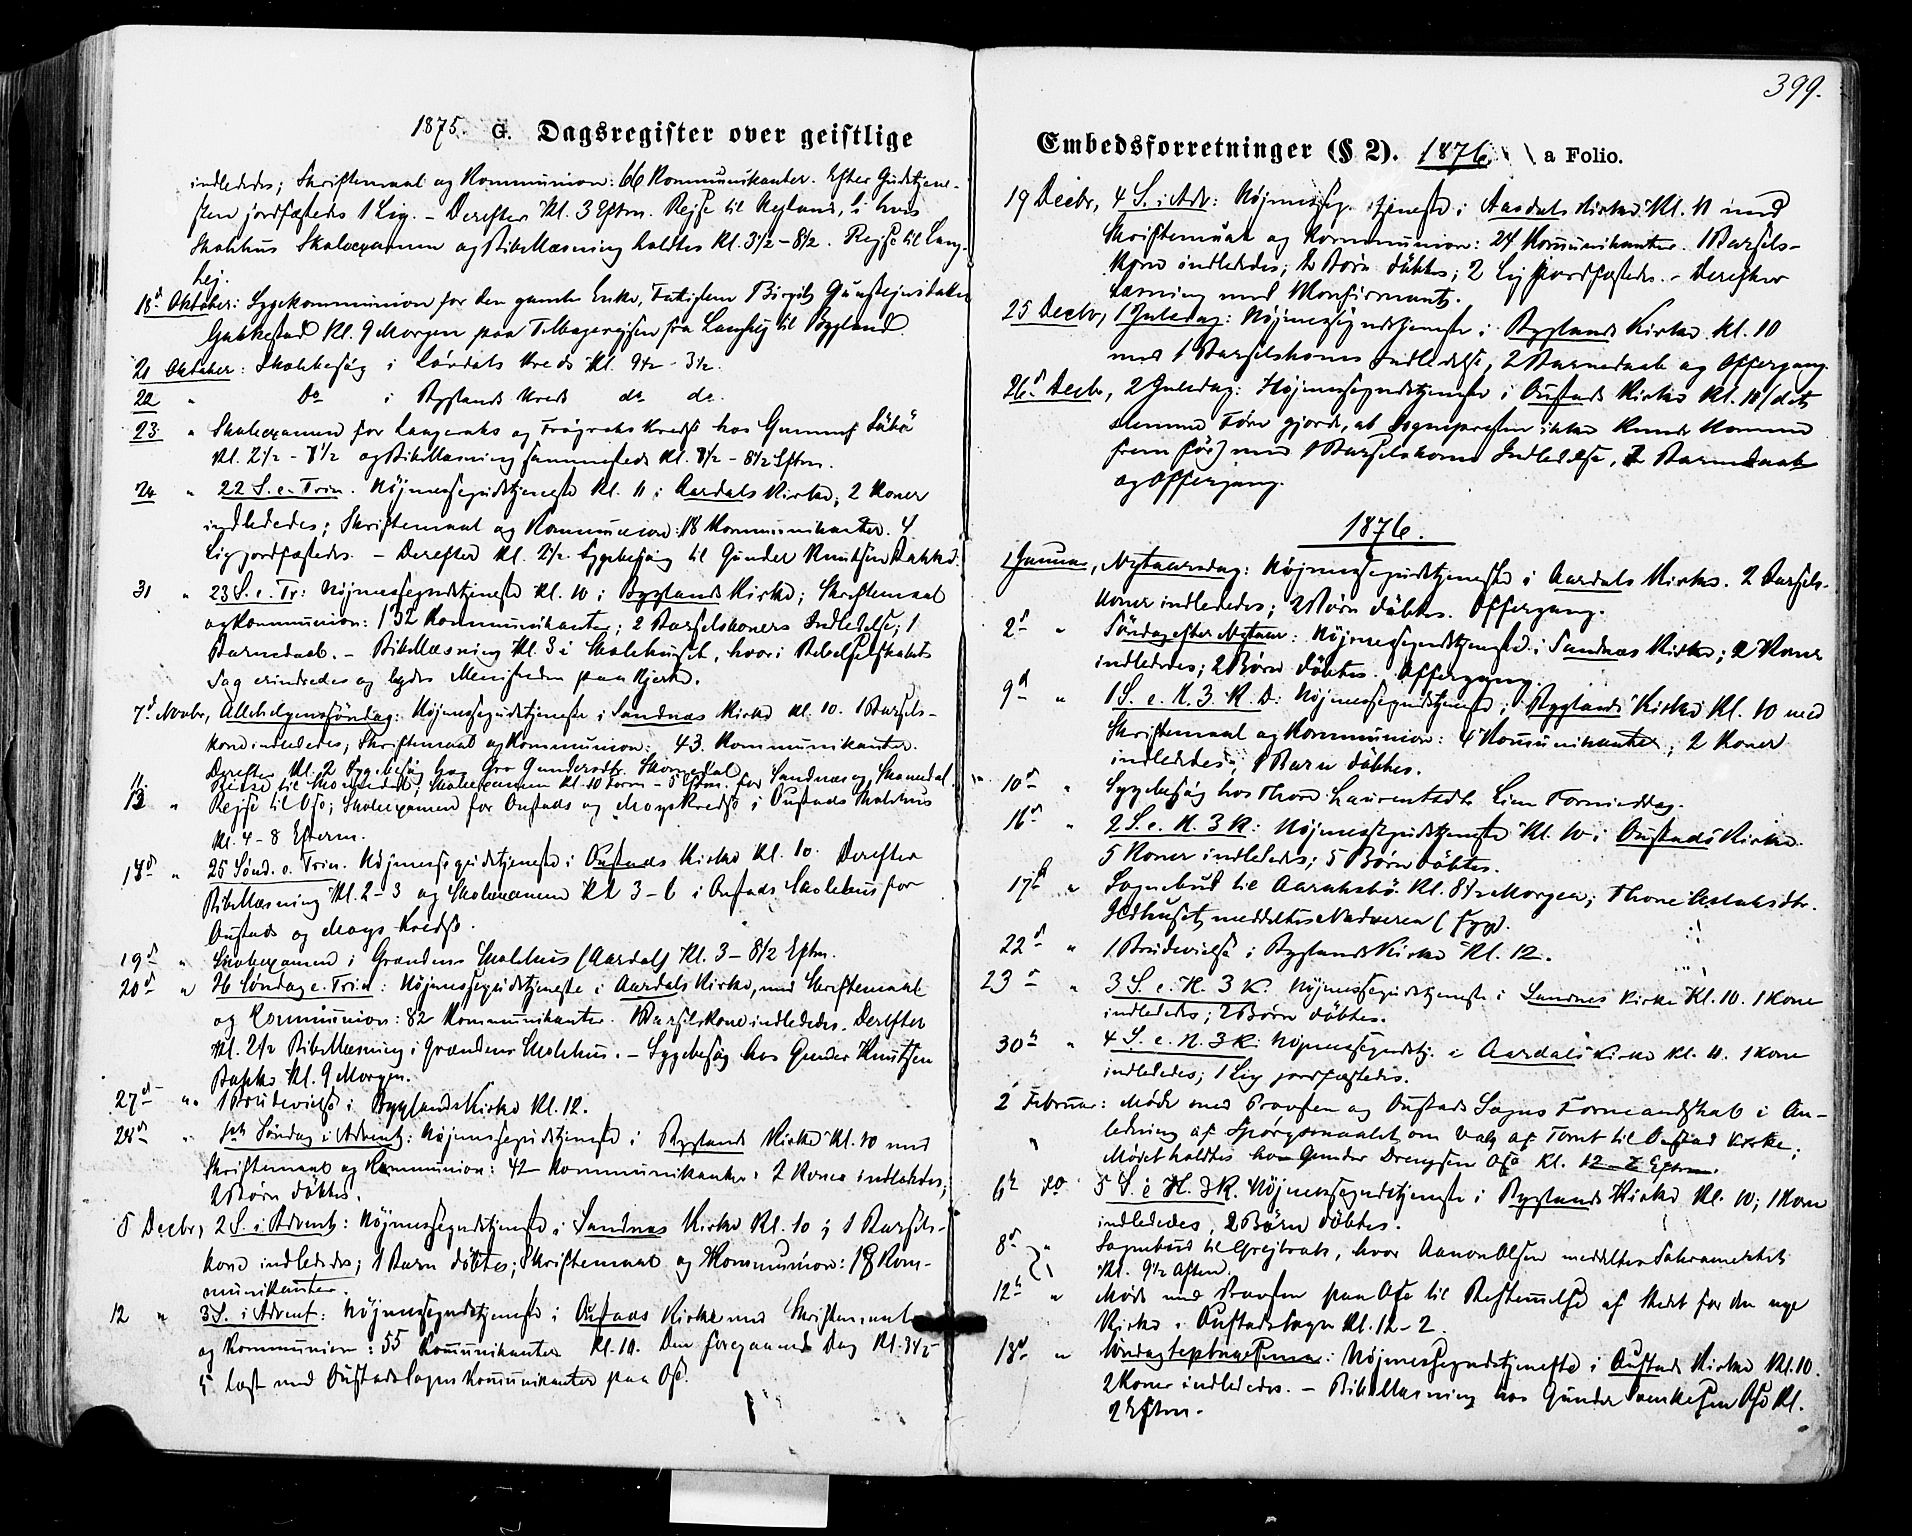 1875. G. Dagsregister over geistlige
indlededes; Skriftemaal og Kommunion: 66 Kommunikanter. Efter Gudstjene-
sten jordfæstedes 1 Lig. – Derefter Kl. 3 Eftm. Rejse til Reiland, i hvis
Skolehus Skoleexamen og Bibellæsning holdtes Kl. 3½ – 8½. Rejse til Lang-
hej.
18d Oktober: Sygekommunion for den gamle Enke, Birgit
Kl. 9 Morgen paa Tilbagerejsen fra Langhej til Bygland.
21 Oktober: Skolebesøg i Lóndals Kreds Kl. 9½ – 3½.
22 " Do i Byglands Kreds do do.
23 " Skoleexamen for Langeraks og Kreds hos Gunnuf
Kl. 2½ – og Bibellæsning sammesteds Kl. – 8½ Eftm.
24 " 22 S. e. Trin. Højmessegudstjeneste Kl. 11 i Aardals Kirke; 2 Koner
indlededes; Skriftemaal og Kommunion: 18 Kommunikanter. 4
Lig jordfæstedes. – Derefter Kl. 2½ Sygebesøg til Gunder Knutsen
31 " 23 S. e. Tr: Højmessegudstjeneste Kl. 10 i Byglands Kirke; Skriftemaal
og Kommunion: 132 Kommunikanter; 2 Barselkoners Indledelse; 1
Barnedaab. – Bibellæsning Kl. 3 i Skolehuset, hvori Bibelselskabets
Sag erindredes og Menigheden paa Hjerte.
7d Novbr, Allehelgenssøndag: Højmessegudstjeneste i Sandnæs Kirke Kl. 10. 1 Barsels-
kone indlededes; Skriftemaal og Kommunion: 43 Kommunikanter.
Derefter Kl. 2 Sygebesøg hos Gro Gundersdtr. Skomedal
11 Rejse til Skomedal; Skoleexamen Kl. 10 Form – 5 Eftm. for Sandnæs og Skomedal.
13 " Rejse til Ose; Skoleexamen for Oustads og Moys Kredse i Oustads Skolehus
Kl. 4 – 8 Efterm.
" 25 Sønd. e. Trin. Højmessegudstjeneste i Oustads Kirke Kl. 10. Derefter
Bibellæsning Kl. 2 – 3 og Skoleexamen Kl. 3 – 6 i Oustads Skolehus for
Oustads og Moys Kredse.
19d " Skoleexamen i Grændens Skolehus (Aardal) Kl. 3 – 8½ Eftm.
20d " 26 Søndag e. Trin: Højmessegudstjeneste i Aardals Kirke, med Skriftemaal
og Kommunion: 82 Kommunikanter. 1 Barselskone indlededes. Derefter
Kl. 2½ Bibellæsning i Grændens Skolehus. – Sygebesøg hos Gunder Knutsen
Kl. 9 Morgen.
27d " 1 Brudevielse i Byglands Kirke Kl. 12.
28d " 1ste Søndag i Advent: Højmessegudstjeneste i Byglands Kirke Kl. 10 med
Skriftemaal og Kommunion: 42 Kommunikanter. 2 Koner indlededes;
2 Børn døbtes.
5 Decbr, 2 S. i Advent: Højmessegudstjeneste i Sandnæs Kirke Kl. 10; 1 Barsels-
kone indlededes; 1 Barn døbtes; Skriftemaal og Kommunion: 18 Kom-
munikanter.
12 " 3 S. i Advent: Højmessegudstjeneste i Oustads Kirke med Skriftemaal
og Kommunion: 55 Kommunikanter Kl. 10. Den foregaaende Dag Kl. 3½–
5 læst med Oustads Sogns Kommunikanter paa Ose.
399.
Embedsforretninger (§ 2). 1876. a Folio.
19 Decbr, 4 S. i Adv: Højmesseg.tjeneste i Aardals Kirke Kl. 11 med
Skriftemaal og Kommunion: 24 Kommunikanter. 1 Barsels-
kone indlededes; 2 Børn døbtes; 2 Lig jordfæstedes. – Derefter
Læsning med Konfirmant.
25 Decbr, 1 Juledag: Højmessegudstjeneste i Byglands Kirke Kl. 10
med 1 Barselskones Indledelse, 2 Barnedaab og Offergang.
26d Decbr, 2 Juledag: Højmessegudstjeneste i Oustads Kirke Kl. (det
slemme Føre gjorde, at Sognepresten ikke kunde komme
frem før) med 1 Barselskones Indledelse, 2 Barnedaab
og Offergang.
1876.
1 Januar, Nytaarsdag: Højmessegudstjeneste i Aardals Kirke. 2 Barsels-
koner indlededes; 2 Børn døbtes. Offergang.
2d " Søndag efter Nytaar: Højmessegudstjeneste i Sandnæs Kirke; 2 Koner
indlededes; 2 Børn døbtes. Offergang.
9d " 1 S. e. H. 3 K. D: Højmessegudstjeneste i Byglands Kirke Kl. 10 med
Skriftemaal og Kommunion: 4 Kommunikanter; 2 Koner
indlededes; 1 Barn døbtes.
10d " Sygebesøg hos Thore Laurentsdtr. Lien Formiddag.
16d " 2 S. e. H. 3 K: Højmessegudstjeneste Kl. 10 i Oustads Kirke.
5 Koner indlededes; 5 Børn døbtes.
17d " Sognebud til Kl. 8½ Morgen; Thore Aslaksdtr.
meddeltes Nadveren (syg).
22d " 1 Brudevielse i Byglands Kirke Kl. 12.
23d " 3 S. e. H. 3 K. Højmessegudstjeneste i Sandnes Kirke Kl. 10. 1 Kone
indlededes; 2 Børn døbtes.
30te " 4 S. e. H. 3 K: Højmessegudstj. i Aardals Kirke Kl. 11. 1 Kone
indlededes; 1 Lig jordfæstedes.
2 Februar: Møde med Provsten og Oustads Sogns Formandskab i An-
" ledning af Spørgsmaalet om Valg af Tomt til Oustad Kirke;
Mødet holdtes hos Gunder Drengsen Ose Kl. 12 – 2 Efterm.
6te do 5 S. e. H. 3 K. Højmessegudstjeneste i Byglands Kirke Kl. 10; 1 Kone
indlededes, 2 Børn døbtes.
8d " Sognebud til hvor Aanon Olsen meddeltes Sakramentet
Kl. 9½ Aften.
12te " Møde med Provsten paa Ose til Bestemmelse af Sted for den nye
Kirke i Oustads Sogn Kl. 12 – 2.
13d " Søndag Septuagesima: Højmessegudstjeneste i Oustads Kirke Kl. 10.
2 Koner indlededes. – Bibellæsning hos Gunder Ose Kl.
2 Eftm.